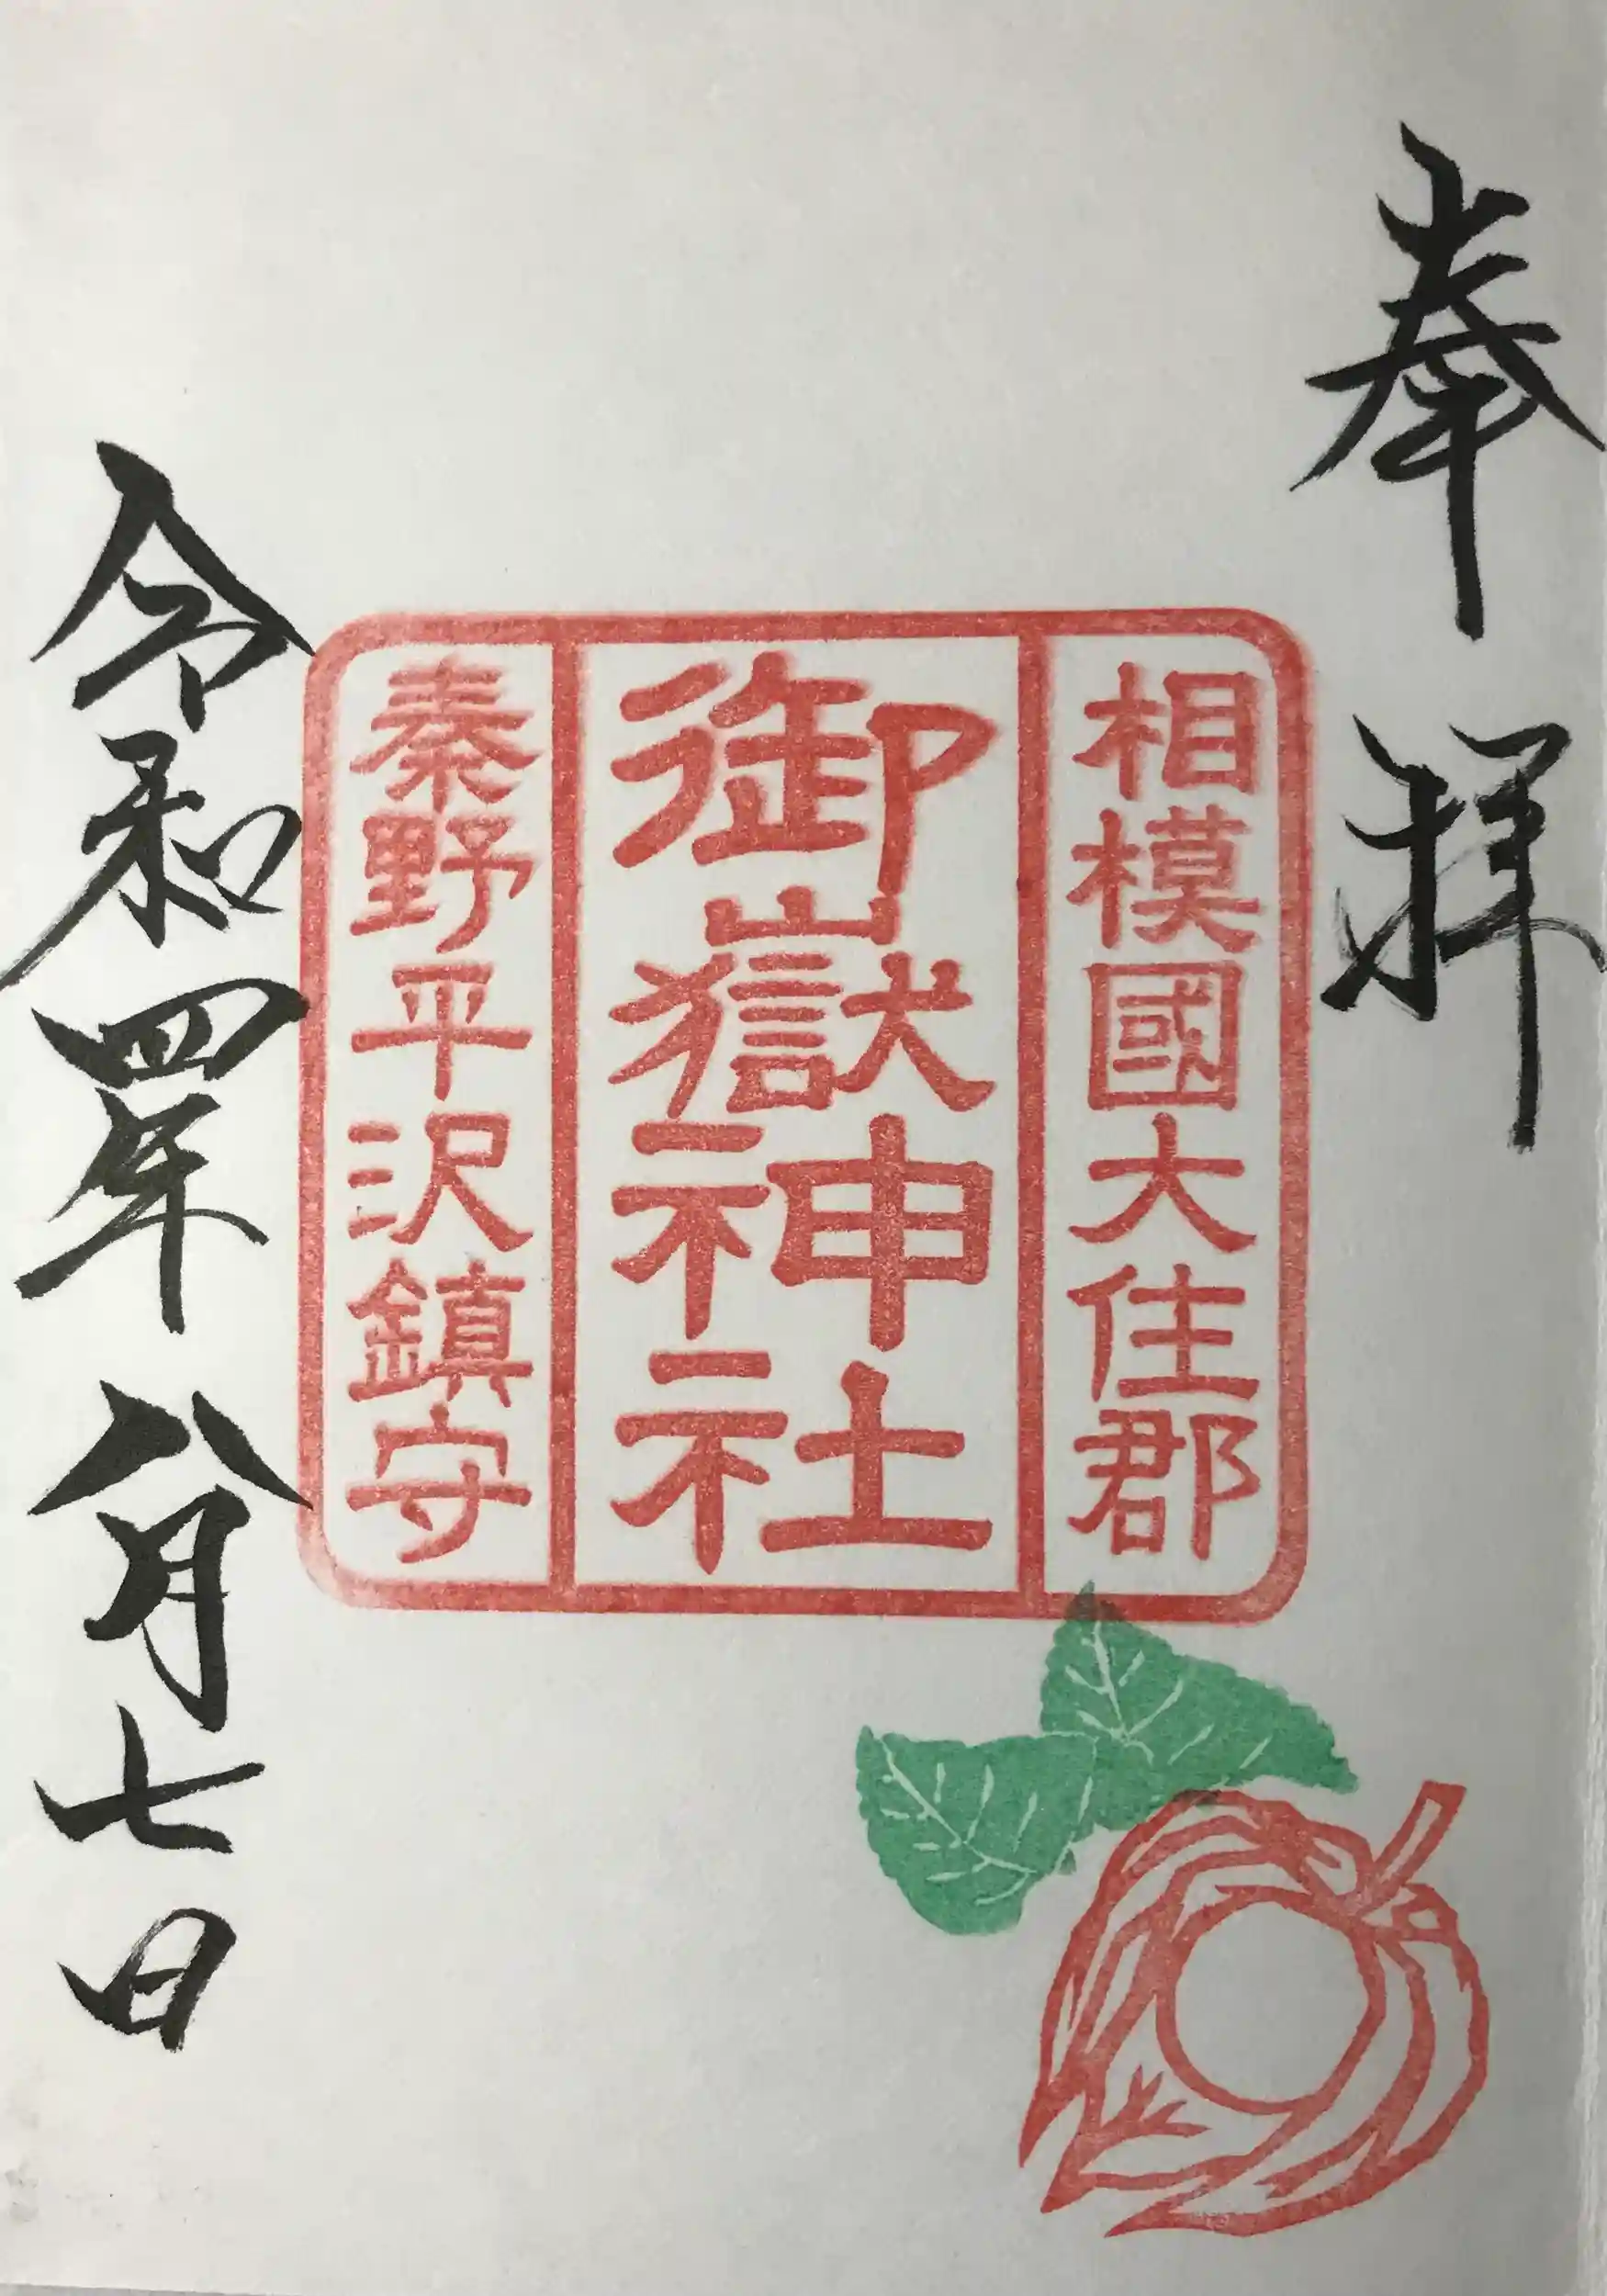 奉拝
相模國大住郡
御嶽神社
秦野平沢鎮守
令和四年八月七日